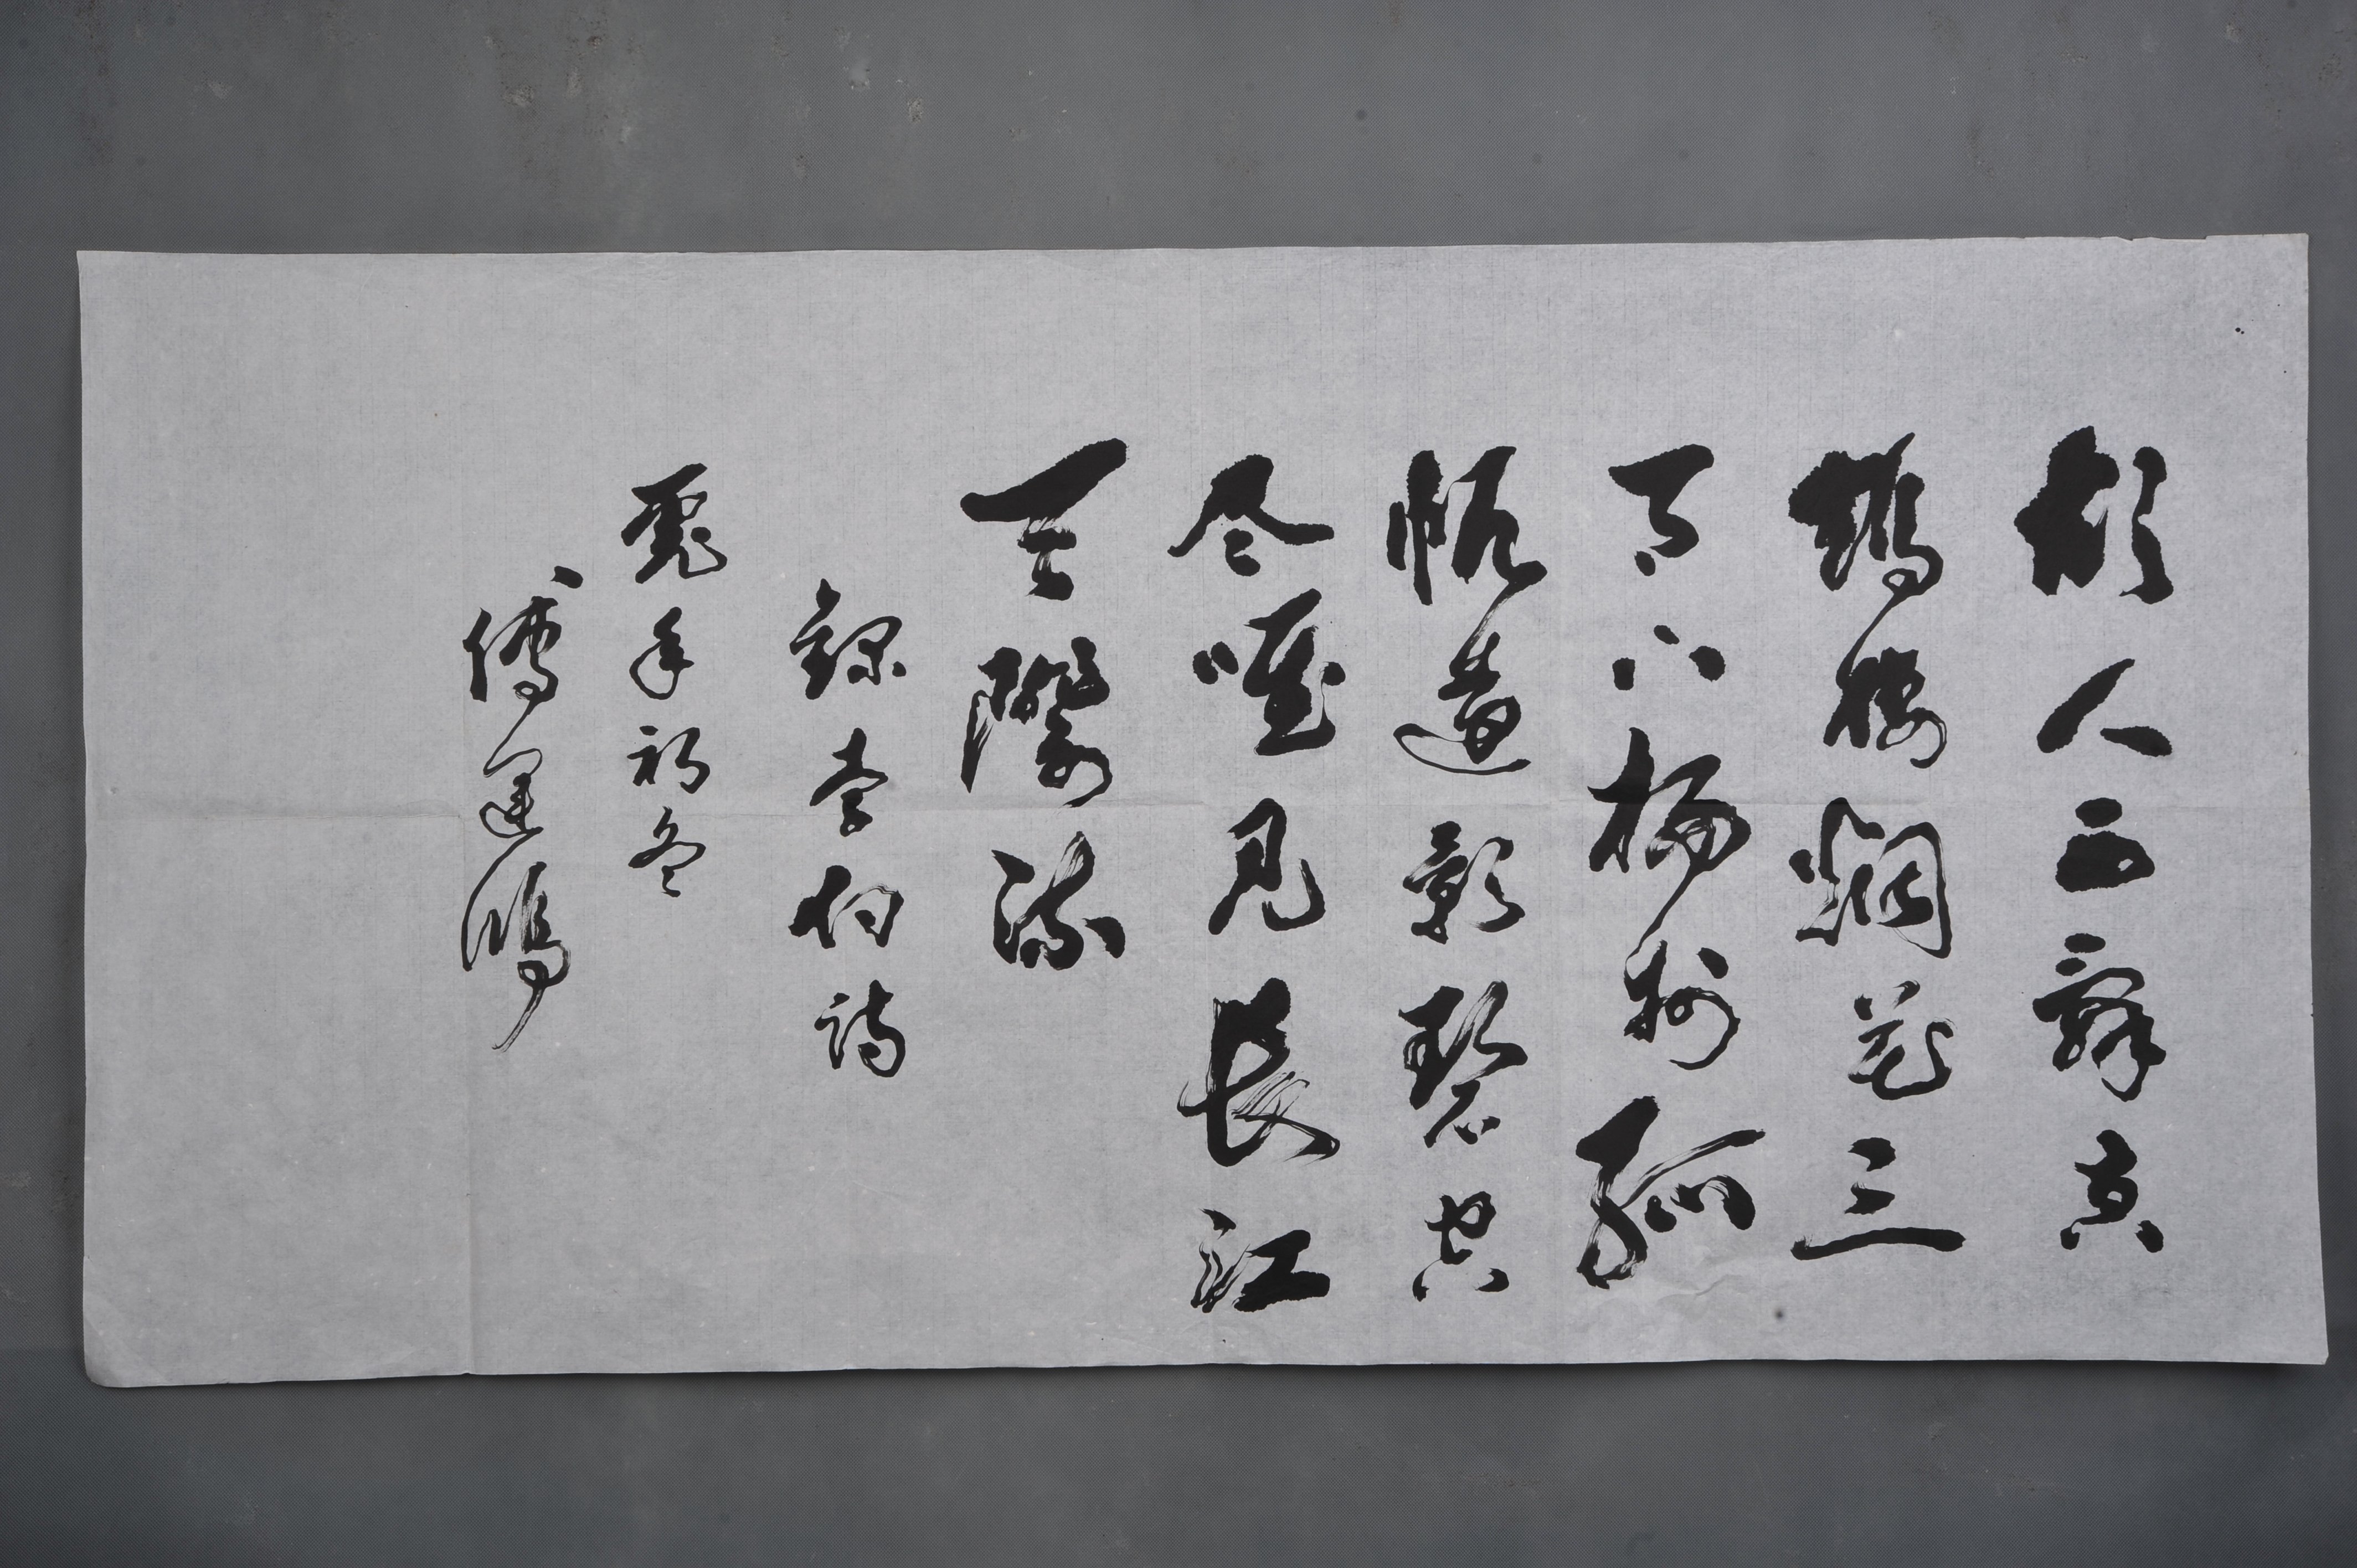 故人西辭黄
鶴樓烟花三
月下揚州孤
帆遠影碧空
尽唯見長江
天際流
錄李白詩
兔年初冬
傅運鴻